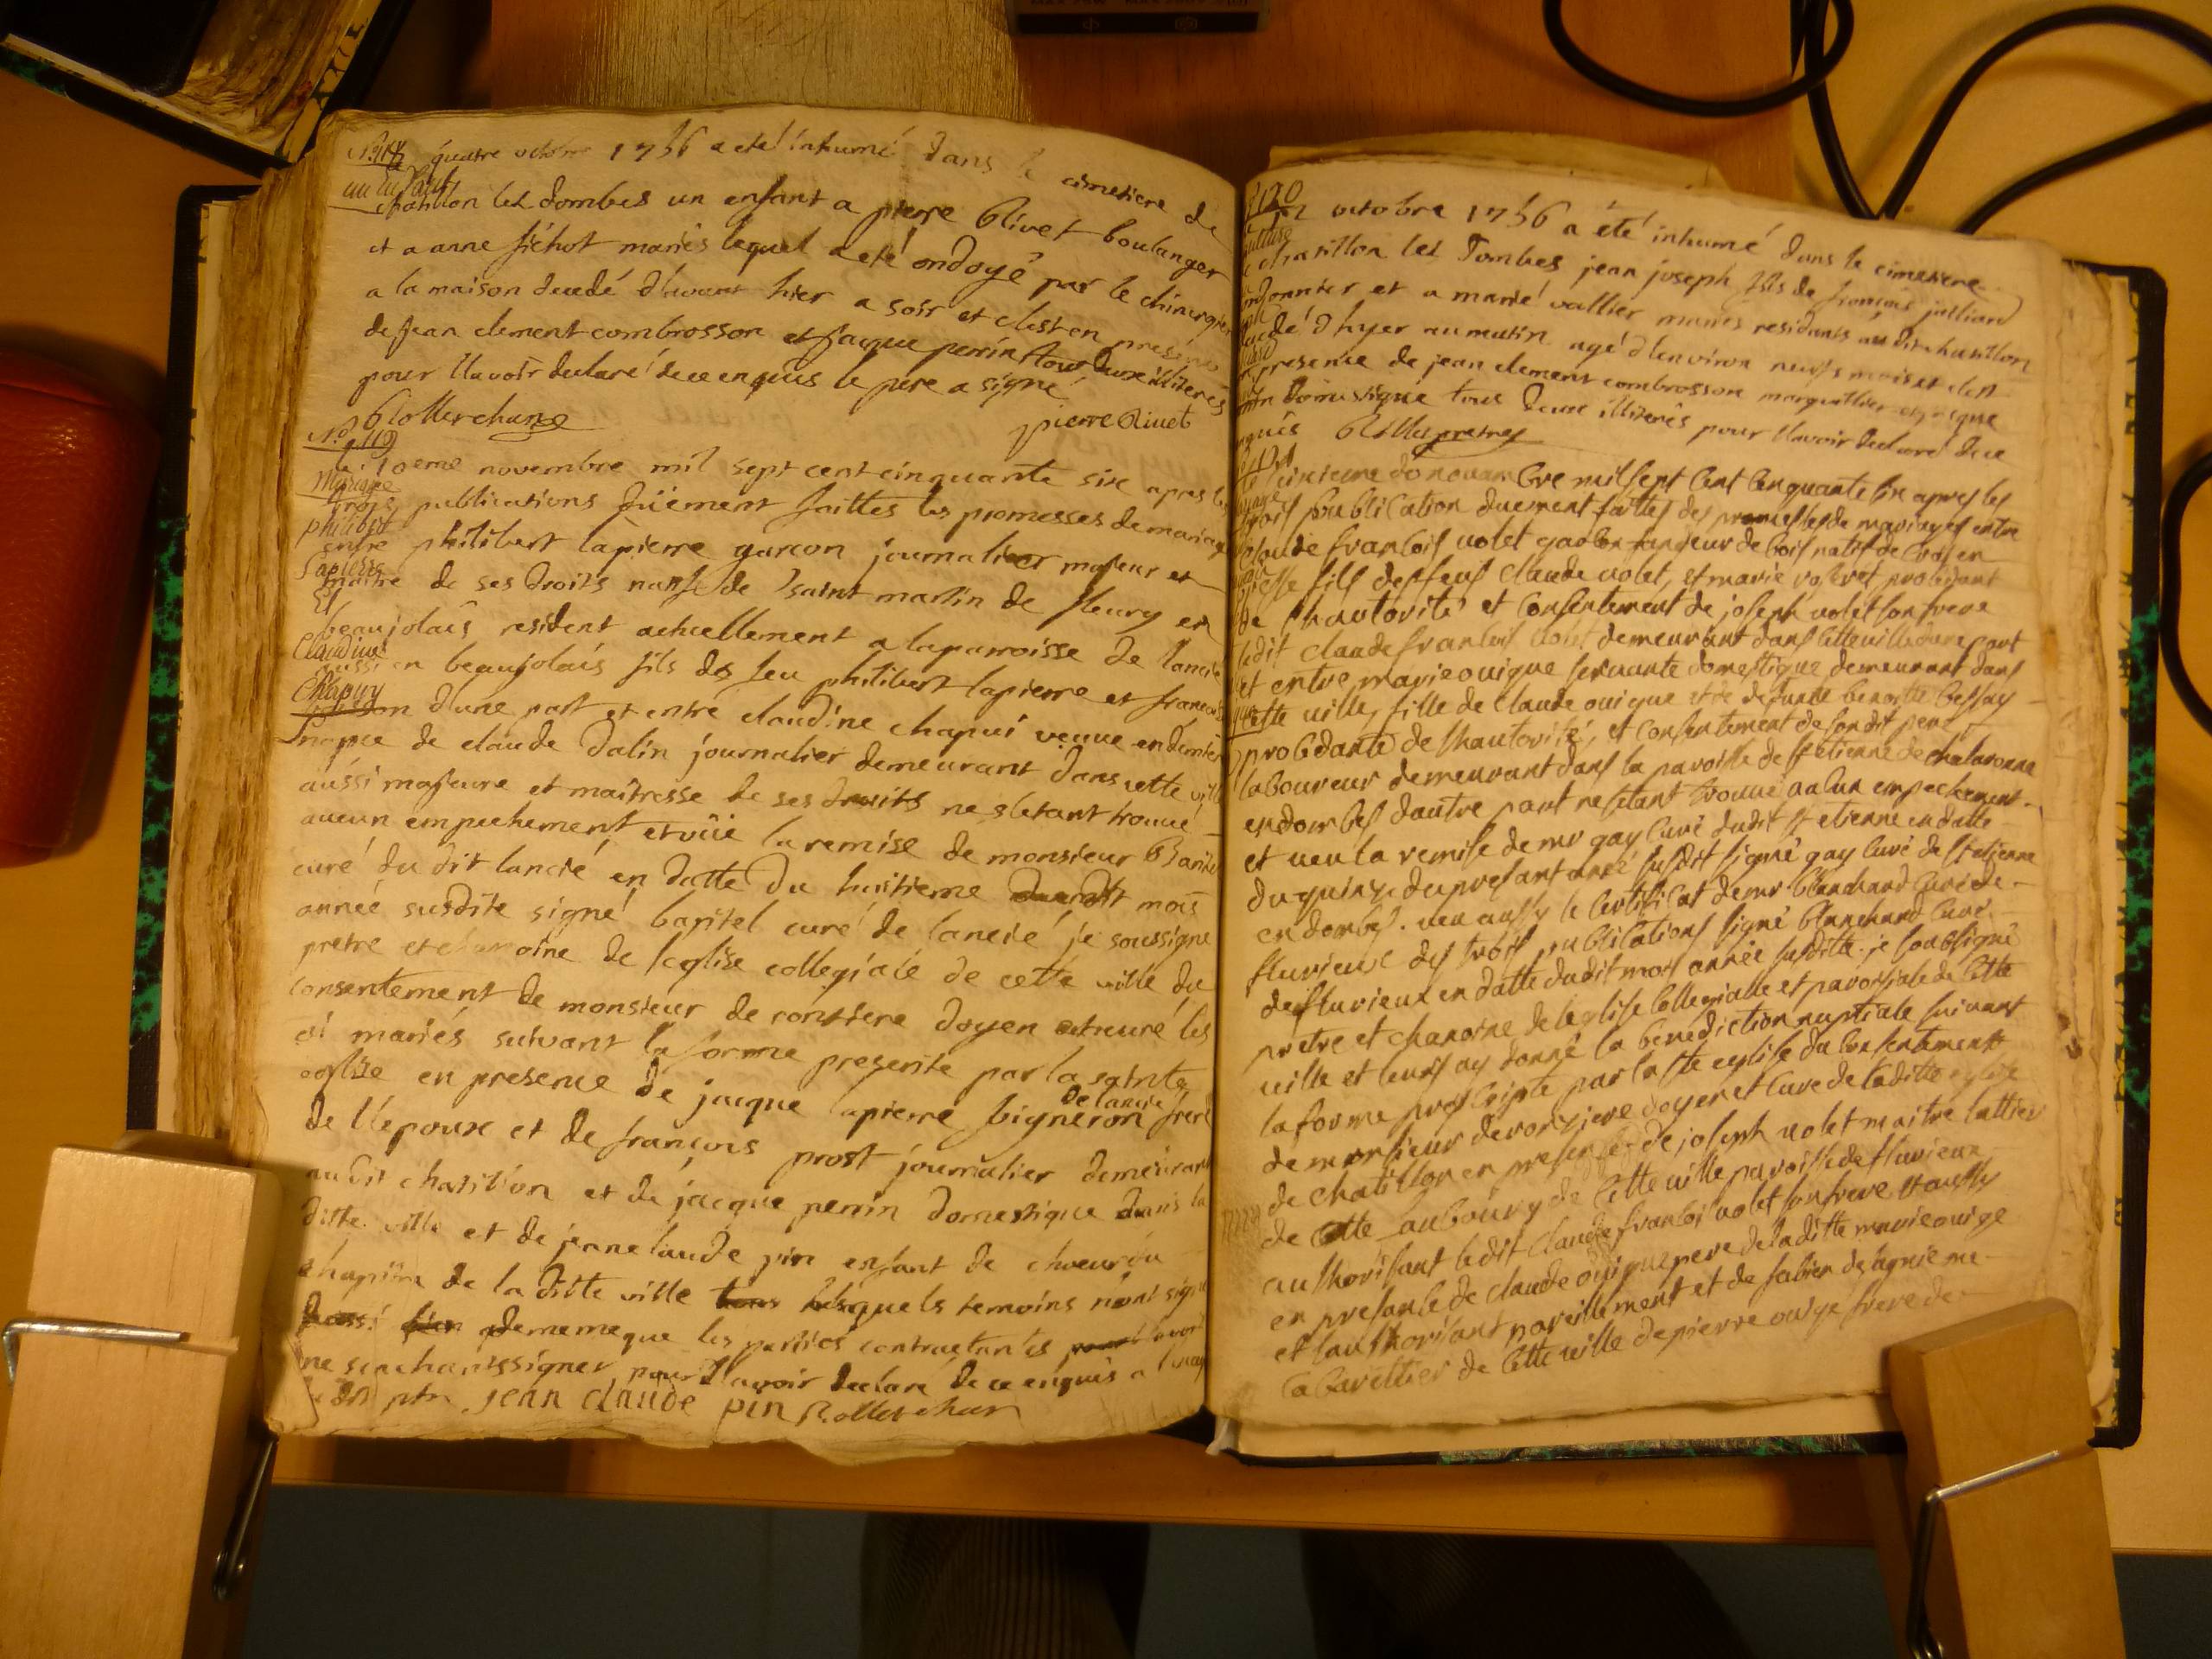 quatre octobre 1756 a eté inhumé dans le cimetiere de
chatillon les dombes un enfant a pierre Olivet boulanger
et a anne fichot mariés lequel a eté ondoyé par le chirurgien
a la maison decedé d'avant hier a soir et c'est en presence
de jean clement combrosson et jaque perin tous deux illiteres
pour l'avoir declaré de ce enquis le pere a signé
pierre Olivet
No 119
Mariage
philibert
Lapierre
Et
Claudine
Chapuy
le 10eme novembre mil sept cent cinquante six apres les
trois publications duëment faittes les promesses de mariage
entre philibert lapierre garcon journalier majeur et
maitre de ses droits natif de saint martin de fleury en
beaujolais resident actuellement a la parroisse de lancié
aussi en beaujolais fils de feu philibert lapierre et
d'une part et entre claudine chapui veuve en derniere
de claude dalin journalier demeurant dans cette ville
aussi majeure et maitresse de ses droits ne s'etant trouvé
aucun empechement et vûë la remise de monsieur
curé du dit lancié en datte du huitieme mois
année susdite signé bapitel curé de lancié je soussigné
pretre et chanoine de l'eglise collegiale de cette ville du
consentement de monsieur de doyen et curé les
ai mariés suivant la forme prescrite par la sainte
eglise en presence de jacque lapierre vigneron de lancié frere
de l'epoux et de françois prost journalier demeurant
au dit chatillon et de jacque perrin domestique dans la
ditte ville et de jean claude pin enfant de choeur du
chapitre de la ditte ville lesquels temoins n'ont signé
de meme que les parties contractantes
ne scachants signer pour l'avoir declaré de ce enquis
jean claude pin
120
octobre 1756 a été inhumé dans le cimetiere
chatillon les Dombes jean joseph fils de françois julliard
cordonnier et a marie vallier mariés residants au dit chatillon
decedé d'hyer au matin agé d'environ neufs mois et c'est
en presence de jean clement combrosson marguillier et jaque
perrin domestique tous deux illiterés pour l'avoir declaré de ce
enquis
121
le dixieme de novambre mil sept Cent Cinquante six apres les
trois publication duement faittes des promesses de mariages entre
claude francois volet garcon fandeur de bois natif de
fils deffeus claude volet, et marie procedant
de l'hautorité et consentement de joseph volet son frere
ledit claude francois volet demeurant dans cette ville d'une part
et entre marie ouigue servante domestique demeurant dans
cette ville, fille de claude ouigue et de defunte benoitte bessay
procedante de l'hautorité, et consentement de son dit pere
laboureur demeurant dans la paroisse de st etienne de chalaronne
en dombes d'autre part ne s'etant trouvé aucun empechement
et veu la remise de mr gay curé dudit st etienne en datte
du quinze du presant année susdit signé gay curé de st etienne
en dombes. veu aussy le certificat de mr blanchard curé de
fluvieux des trois publications signé blanchard curé
de fluvieux en datte dudit mois année susditte. je soussigné
pretre et chanoine de l'eglise collegialle et paroissiale de cette
ville et leurs ay donné la benediction nuptiale suivant
la forme prescripte par la ste eglise du consentement
de monsieur de doyen et curé de laditte eglise
de chatillon en presence de joseph volet maitre
de cette aubourg de cette ville paroisse de fluvieux
authorisant ledit claude francois volet son frere et aussy
en presance de claude ouigue pere de laditte marie ouige
et l'authorisant pareillement et de fabien
cabarettier de cette ville de pierre ouige frere de